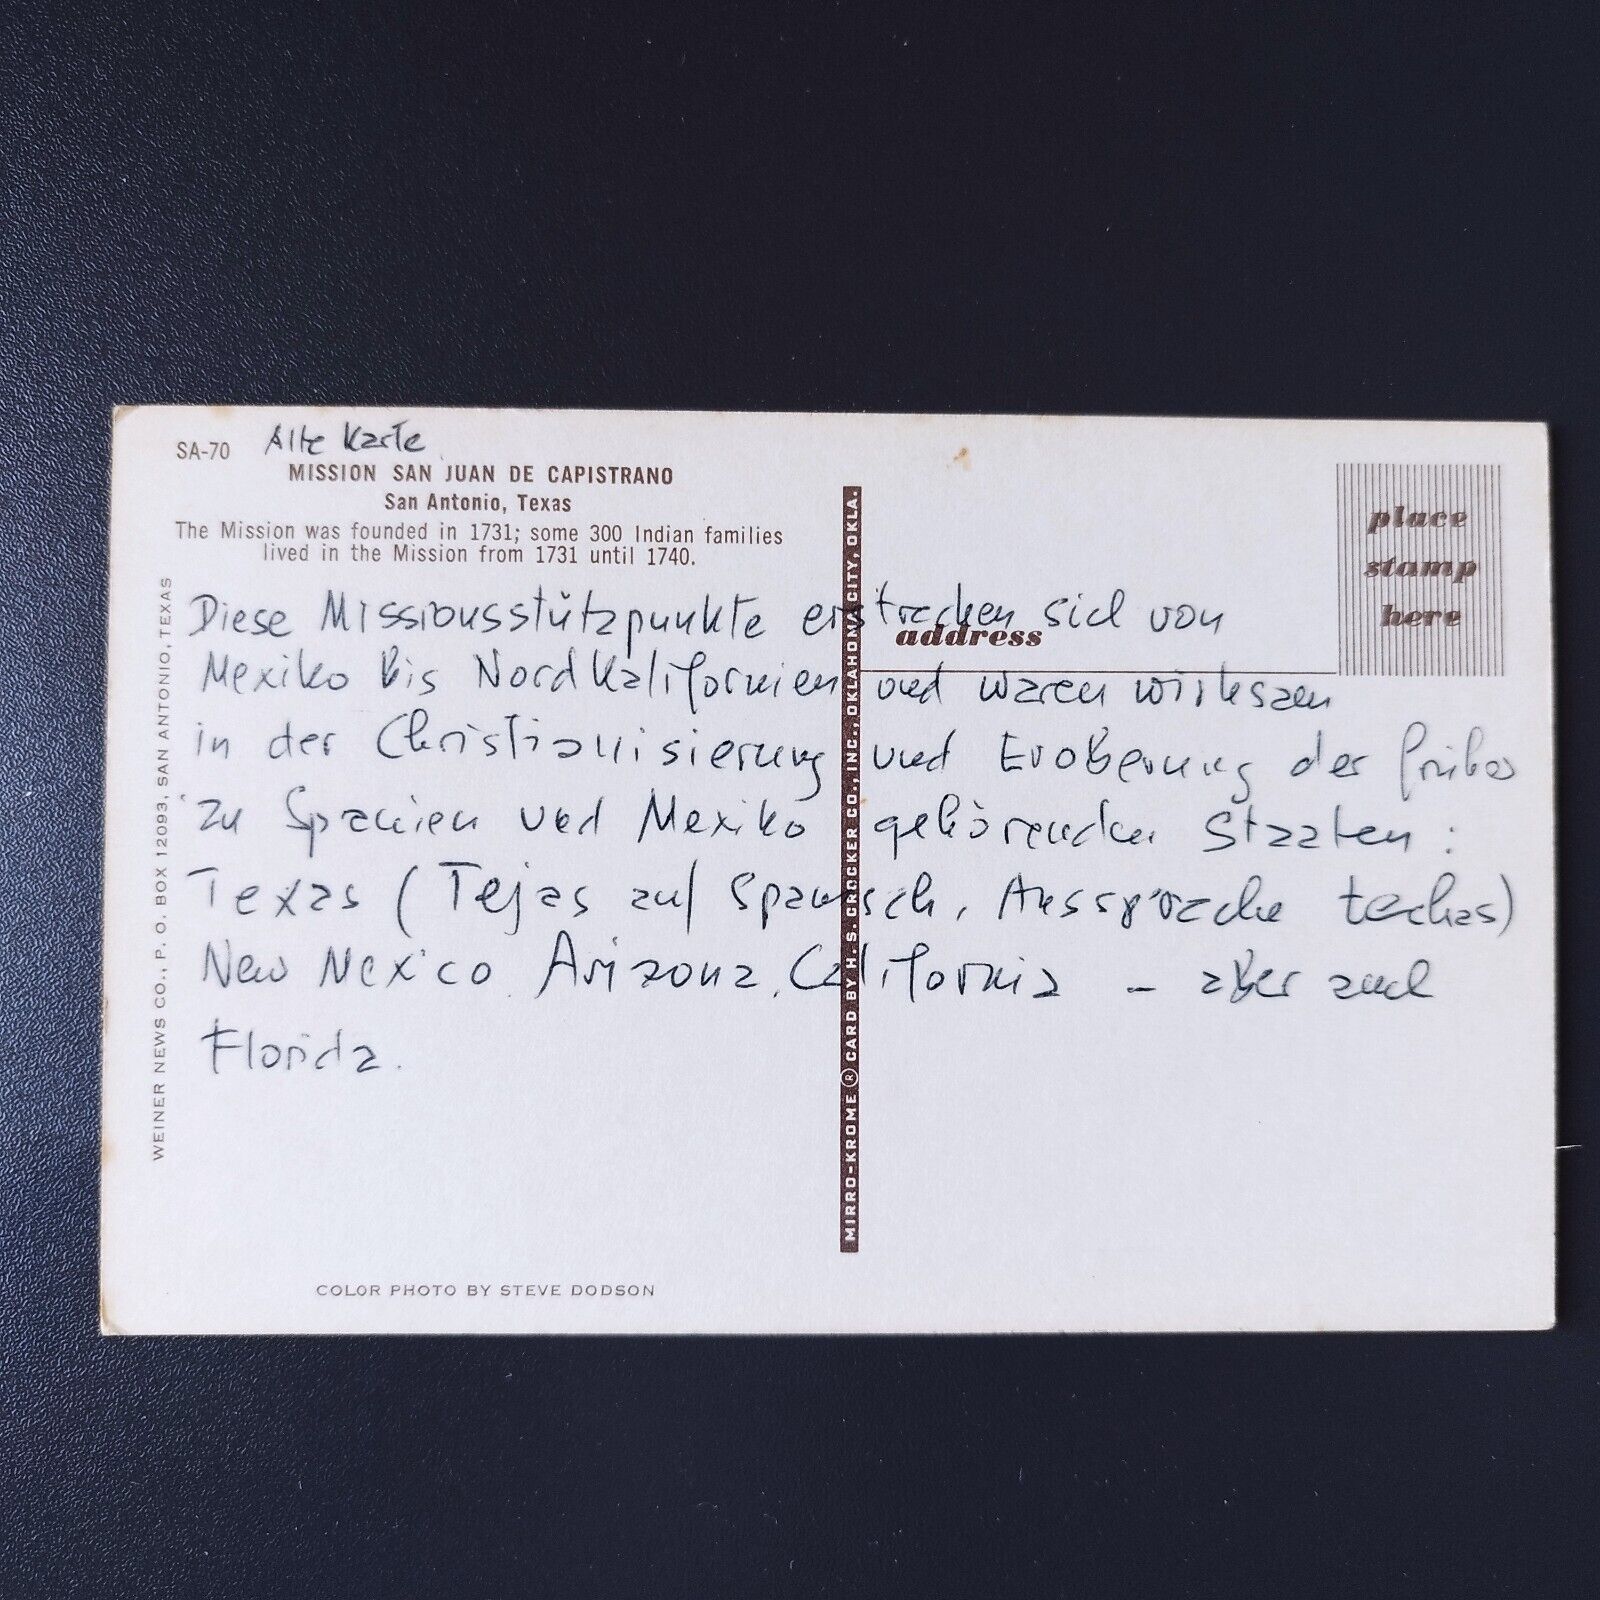 SA-70 Alte Karte
MISSION SAN JUAN DE CAPISTRANO
San Antonio, Texas
The Mission was founded in 1731; some 300 Indian families
lived in the Mission from 1731 until 1740.
Diese Missionsstützpunkte erstrecken sich von
Mexiko bis Nordkalifornien und waren wirksam
in der Christianisierung und Eroberung der früher
zu Spanien und Mexiko gehörenden Staaten:
Texas (Tejas auf Spanisch, Aussprache techas)
New Mexico, Arizona, California – aber auch
Florida.
COLOR PHOTO BY STEVE DODSON
WEINER NEWS CO., P. O. BOX 12093, SAN ANTONIO, TEXAS
MIRRO-KROME ® CARD BY H. S. CROCKER CO., INC., OKLAHOMA CITY, OKLA.
address
place
stamp
here